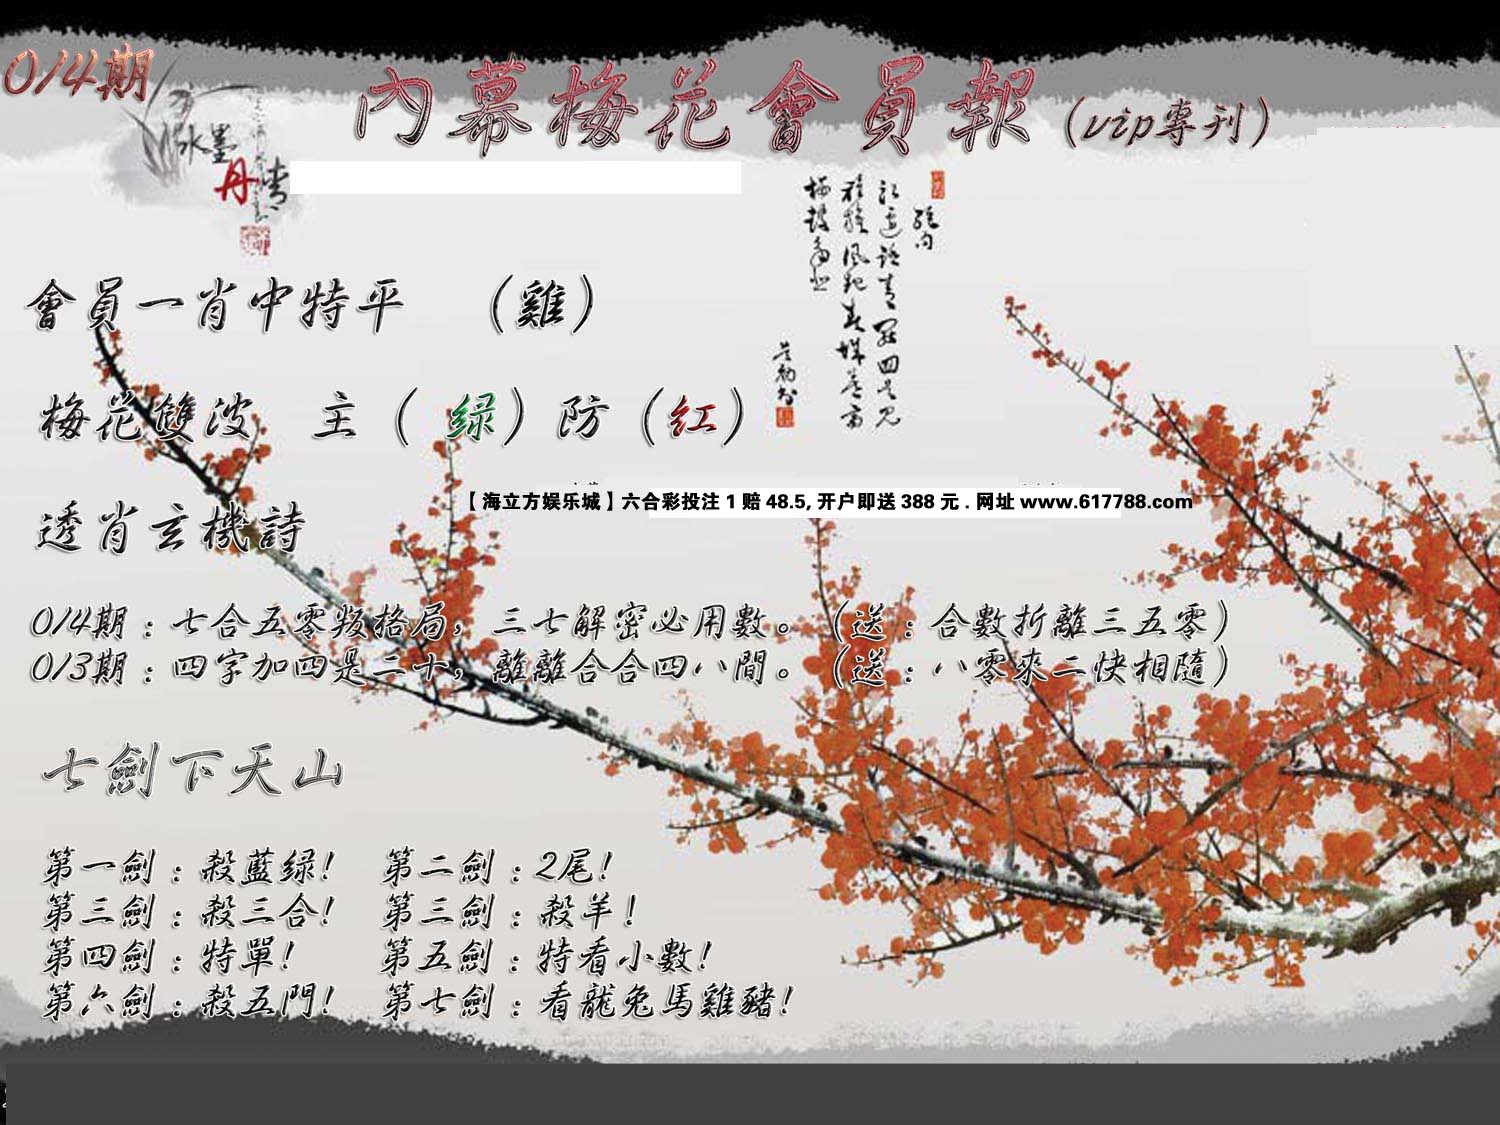 014期
內幕梅花會員報(vip專刊)
水墨
丹青
會員一肖中特平 (雞)
梅花雙波 主(绿)防(红)
【海立方娱乐城】六合彩投注1赔48.5,开户即送388元.网址www.617788.com
透肖玄機詩
014期:七合五零叛格局,三七解密必用數。(送:合數折離三五零)
013期:四字加四是二十,離離合合四八間。(送:八零來二快相隨)
七劍下天山
第一劍:殺藍绿! 第二劍:2尾!
第三劍:殺三合! 第三劍:殺羊!
第四劍:特單! 第五劍:特看小數!
第六劍:殺五門! 第七劍:看龍兔馬雞豬!